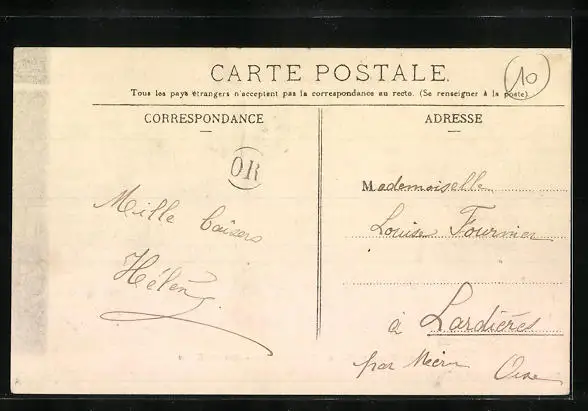 CARTE POSTALE.
10
Tous les pays étrangers n'acceptent pas la correspondance au recto. (Se renseigner à la poste).
CORRESPONDANCE
ADRESSE
OR
Mille baisers
Hélène
Mademoiselle
Louise Fournier
à Lardières
par Méru Oise